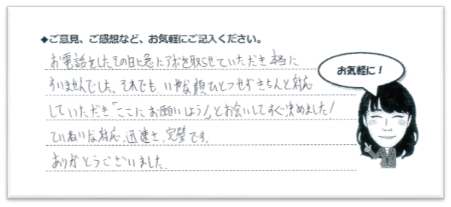 ◆ご意見、ご感想など、お気軽にご記入ください。
お電話をしたその日に急にアポを取らせていただき本当に
すいませんでした。それでもいやな顔ひとつせずきちんと対応
していただき「ここにお願いしよう!」とお会いしてすぐ決めました!
ていねいな対応、迅速さ、完璧です。
ありがとうございました。
お気軽に!